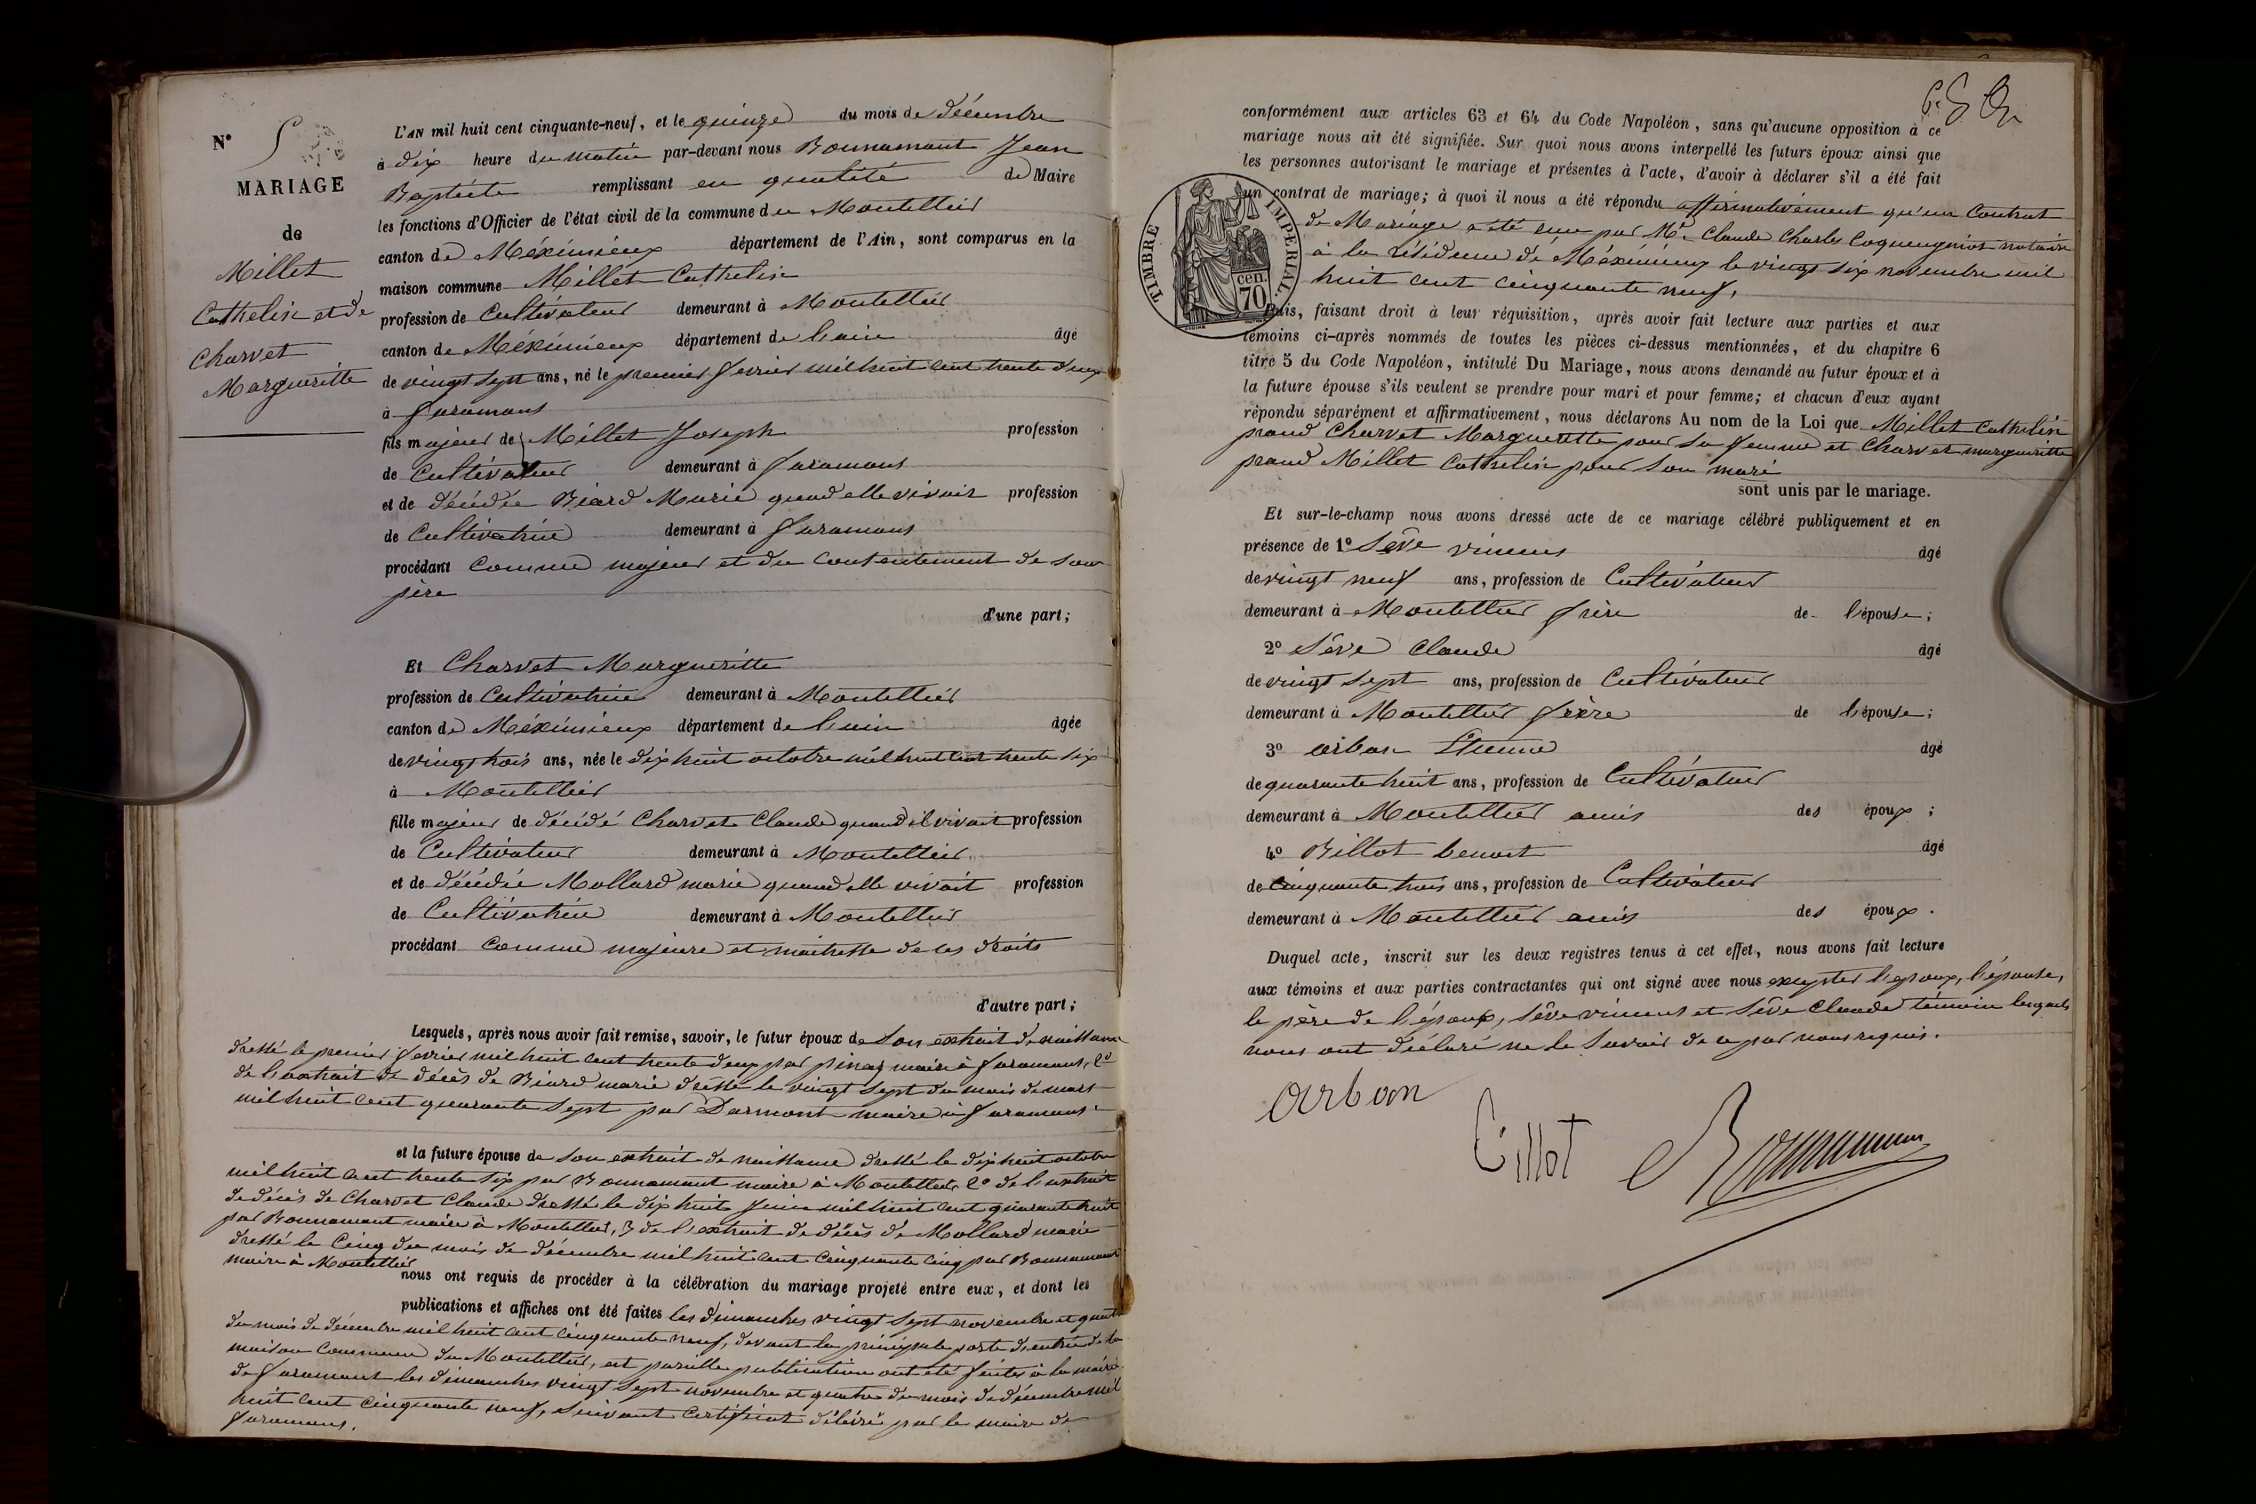 N° 5
MARIAGE
de
Millet
Cathelin et de
Charvet
Margueritte
L'AN mil huit cent cinquante-neuf, et le quinze du mois de décembre
à dix heure du matin par-devant nous Bonnamant Jean
Baptiste remplissant en qualité de Maire
les fonctions d'Officier de l'état civil de la commune du Montellier
canton de Méximieux département de l'Ain, sont comparus en la
maison commune Millet Cathelin
profession de Cultivateur demeurant à Montellier
canton de Méximieux département de l'ain âgé
de vingt sept ans, né le premier fevrier mil huit cent trente deux
à faramans
fils majeur de Millet Joseph profession
de Cultivateur demeurant à faramans
et de décédée Biard Marie quand elle vivait profession
de Cultivatrice demeurant à faramans
procédant comme majeur et du consentement de son
père
d'une part;
Et Charvet Margueritte
profession de Cultivatrice demeurant à Montellier
canton de Méximieux département de l'ain âgée
de vingt trois ans, née le dix huit octobre mil huit cent trente six
à Montellier
fille majeur de décédé Charvet Claude quand il vivait profession
de Cultivateur demeurant à Montellier
et de décédée Mollard marie quand elle vivait profession
de Cultivatrice demeurant à Montellier
procédant comme majeure et maitresse de ses droits
d'autre part;
Lesquels, après nous avoir fait remise, savoir, le futur époux de son extrait de naissance
dressé le premier fevrier mil huit cent trente deux par pinaz maire à faramans, 2°
de l'extrait de décès de Biard marie dressé le vingt sept du mois de mars
mil huit cent quarante sept par Darmont maire à faramans.
et la future épouse de son extrait de naissance dressé le dix huit octobre
mil huit cent trente six par Bonnamant maire à Montellier, 2° de l'extrait
de décès de Charvet Claude dressé le dix huit Juin mil huit cent quarante huit
par Bonnamant maire à Montellier, 3 de l'extrait de décès de Mollard marie
dressé le Cinq du mois de décembre mil huit cent cinquante cinq par Bonnamant
maire à Montellier
nous ont requis de procéder à la célébration du mariage projeté entre eux, et dont les
publications et affiches ont été faites les dimanches vingt sept novembre et quatre
du mois de décembre mil huit cent cinquante neuf, devant la principale porte d'entrée de la
maison Commune du Montellier, et pareille publication ont été faites à la mairie
de faramant les dimanches vingt sept novembre et quatre du mois de décembre mil
huit cent cinquante neuf, suivant certificat délivré par le maire de
faramans.
conformément aux articles 63 et 64 du Code Napoléon, sans qu'aucune opposition à ce
mariage nous ait été signifiée. Sur quoi nous avons interpellé les futurs époux ainsi que
les personnes autorisant le mariage et présentes à l'acte, d'avoir à déclarer s'il a été fait
un contrat de mariage; à quoi il nous a été répondu affirmativement qu'un Contrat
de Mariage a été reçu par Mr. Claude Charles Coquengniot notaire
à la résidence de Méximieux le vingt six novembre mil
huit cent cinquante neuf,
TIMBRE IMPÉRIAL.
cen.
70
Puis, faisant droit à leur réquisition, après avoir fait lecture aux parties et aux
témoins ci-après nommés de toutes les pièces ci-dessus mentionnées, et du chapitre 6
titre 5 du Code Napoléon, intitulé Du Mariage, nous avons demandé au futur époux et à
la future épouse s'ils veulent se prendre pour mari et pour femme; et chacun d'eux ayant
répondu séparément et affirmativement, nous déclarons Au nom de la Loi que Millet Cathelin
prand Charvet Margueritte pour sa femme et Charvet margueritte
prand Millet Cathelin pour son mari
sont unis par le mariage.
Et sur-le-champ nous avons dressé acte de ce mariage célébré publiquement et en
présence de 1° Sêve vincens âgé
de vingt neuf ans, profession de Cultivateur
demeurant à Montellier frère de l'épouse;
2° Sêve Claude âgé
de vingt sept ans, profession de Cultivateur
demeurant à Montellier frère de l'épouse;
3° arban Etienne âgé
de quarante huit ans, profession de Cultivateur
demeurant à Montellier amis des époux;
4° Billot benoit âgé
de cinquante trois ans, profession de Cultivateur
demeurant à Montellier amis des époux.
Duquel acte, inscrit sur les deux registres tenus à cet effet, nous avons fait lecture
aux témoins et aux parties contractantes qui ont signé avec nous exeptés l'epoux, l'épouse,
le père de l'époux, Sêve vincens et Sêve Claude témoin lesquels
nous ont déclaré ne le savoir de ce par nous requis.
arban
Billot
Bonnamant